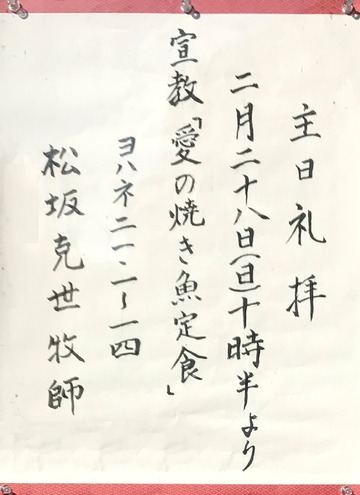 主日礼拝
二月二十八日(日)十時半より
宣教「愛の焼き魚定食」
ヨハネ二一・一～一四
松坂克世牧師